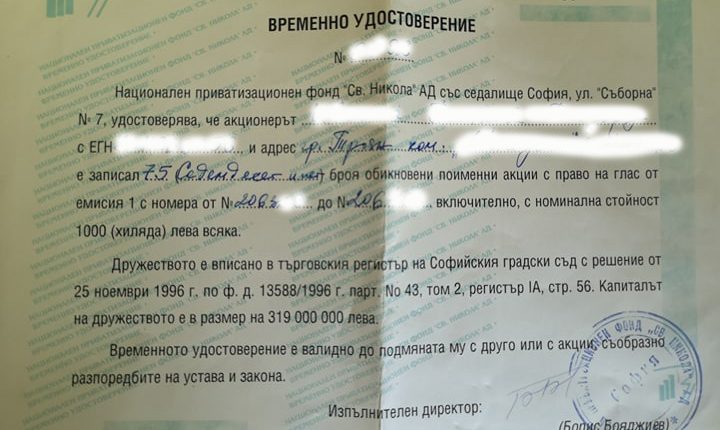 ВРЕМЕННО УДОСТОВЕРЕНИЕ
№
Национален приватизационен фонд "Св. Никола" АД със седалище София, ул. "Съборна"
№ 7, удостоверява, че акционерът
с ЕГН , и адрес гр. Троян ком.
е записал 75 (Седемдесет и пет) броя обикновени поименни акции с право на глас от
емисия 1 с номера от № 206 до № 206 включително, с номинална стойност
1000 (хиляда) лева всяка.
Дружеството е вписано в търговския регистър на Софийския градски съд с решение от
25 ноември 1996 г. по ф. д. 13588/1996 г. парт. No 43, том 2, регистър IA, стр. 56. Капиталът
на дружеството е в размер на 319 000 000 лева.
Временното удостоверение е валидно до подмяната му с друго или с акции, съобразно
разпоредбите на устава и закона.
Изпълнителен директор:
(Борис Бояджиев)
ФОНД „СВ. НИКОЛА" АД
София
НАЦИОНАЛЕН ПРИВАТИЗАЦИОНЕН ФОНД "СВ. НИКОЛА" АД
ВРЕМЕННО УДОСТОВЕРЕНИЕ